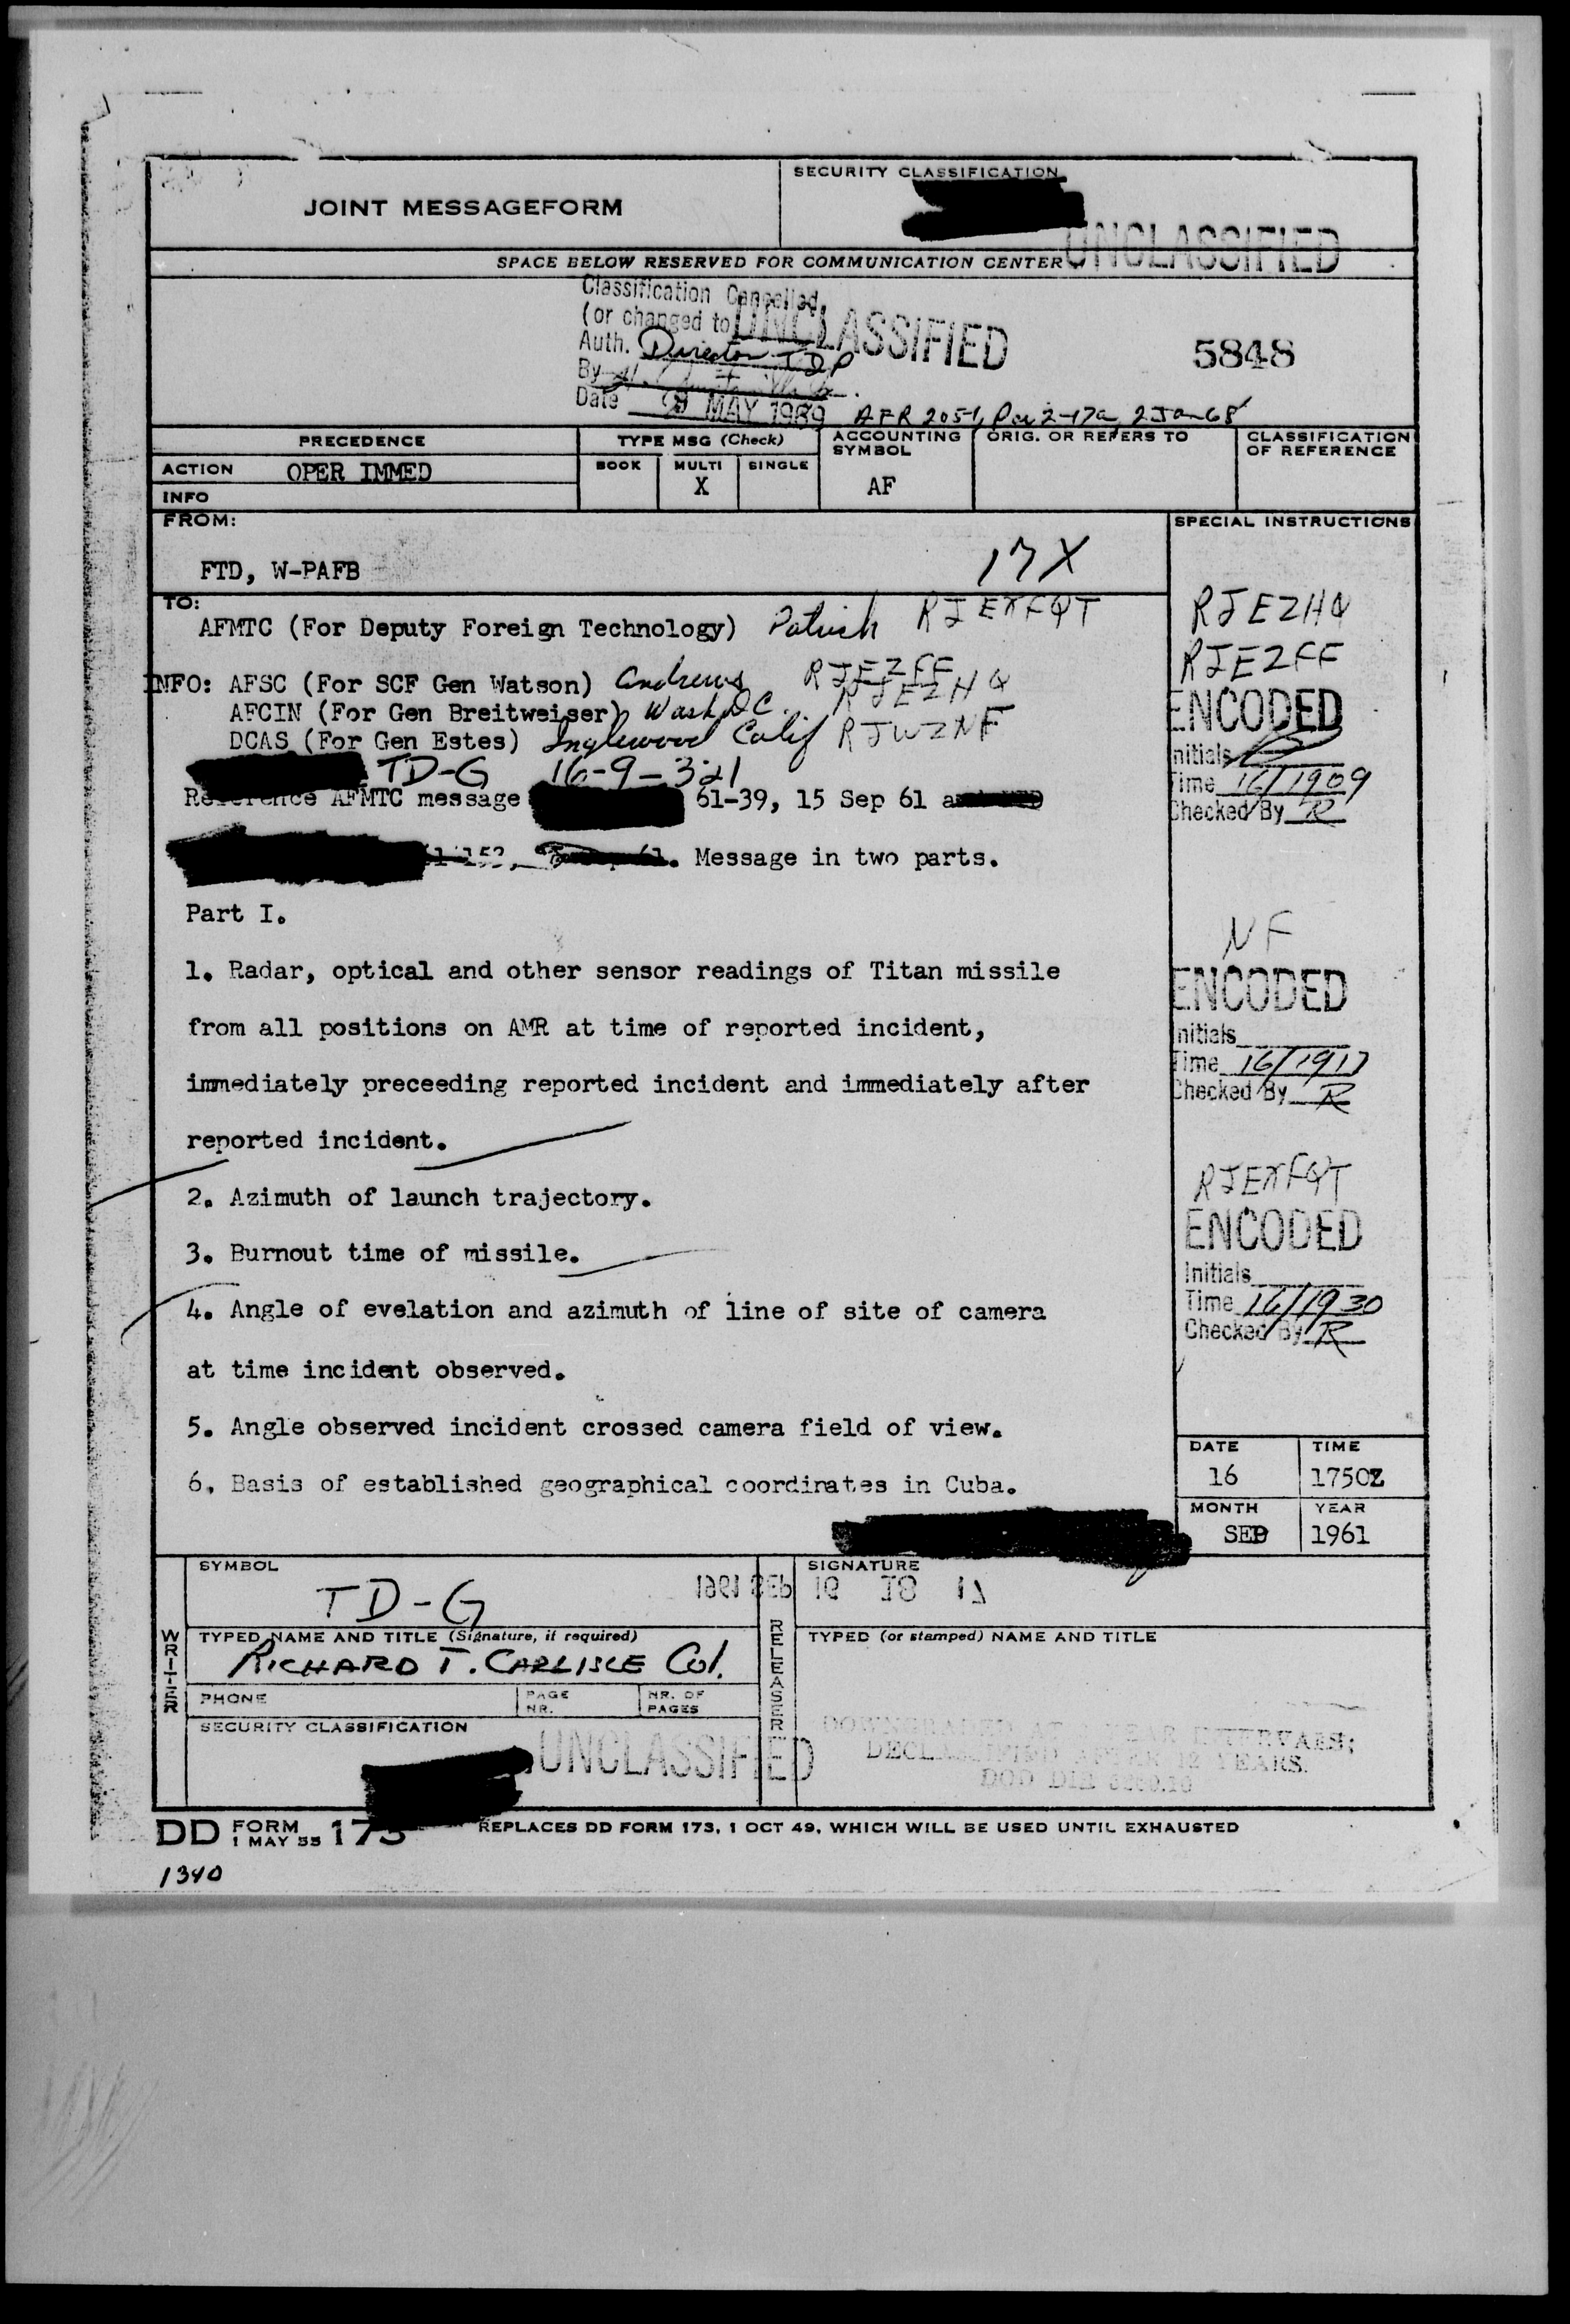 JOINT MESSAGEFORM
SECURITY CLASSIFICATION
UNCLASSIFIED
SPACE BELOW RESERVED FOR COMMUNICATION CENTER
Classification Cancelled
(or changed to UNCLASSIFIED
Auth. Director TDP
By
Date 9 MAY 1969 AFR 205-1, Par 2-17a, 2 Jan 68
5848
PRECEDENCE
TYPE MSG (Check)
ACCOUNTING SYMBOL
ORIG. OR REFERS TO
CLASSIFICATION OF REFERENCE
ACTION OPER IMMED
BOOK MULTI SINGLE
X
AF
INFO
FROM:
SPECIAL INSTRUCTIONS
FTD, W-PAFB
17X
TO:
AFMTC (For Deputy Foreign Technology) Patrick RJEXFQT
INFO: AFSC (For SCF Gen Watson) Andrews RJEZFF
AFCIN (For Gen Breitweiser) Wash DC. RJEZHQ
DCAS (For Gen Estes) Inglewood Calif RJWZNF
TD-G 16-9-321
Reference AFMTC message 61-39, 15 Sep 61
Message in two parts.
Part I.
1. Radar, optical and other sensor readings of Titan missile
from all positions on AMR at time of reported incident,
immediately preceeding reported incident and immediately after
reported incident.
2. Azimuth of launch trajectory.
3. Burnout time of missile.
4. Angle of evelation and azimuth of line of site of camera
at time incident observed.
5. Angle observed incident crossed camera field of view.
6. Basis of established geographical coordinates in Cuba.
RJEZHQ
RJEZFF
ENCODED
Initials
Time 16/1909
Checked By R
NF
ENCODED
Initials
Time 16/1917
Checked By R
RJEXFQT
ENCODED
Initials
Time 16/1930
Checked By R
DATE TIME
16 1750Z
MONTH YEAR
SEP 1961
SYMBOL
TD-G
1961 SEP 16 18 17
SIGNATURE
WRITER
TYPED NAME AND TITLE (Signature, if required)
RICHARD T. CARLISLE Col.
RELEASER
TYPED (or stamped) NAME AND TITLE
PHONE
PAGE NR.
NR. OF PAGES
SECURITY CLASSIFICATION
UNCLASSIFIED
DOWNGRADED AT YEAR INTERVALS;
DECLASSIFIED AFTER 12 YEARS.
DOD DIR 5200.10
DD FORM 1 MAY 55 173
REPLACES DD FORM 173, 1 OCT 49, WHICH WILL BE USED UNTIL EXHAUSTED
1340